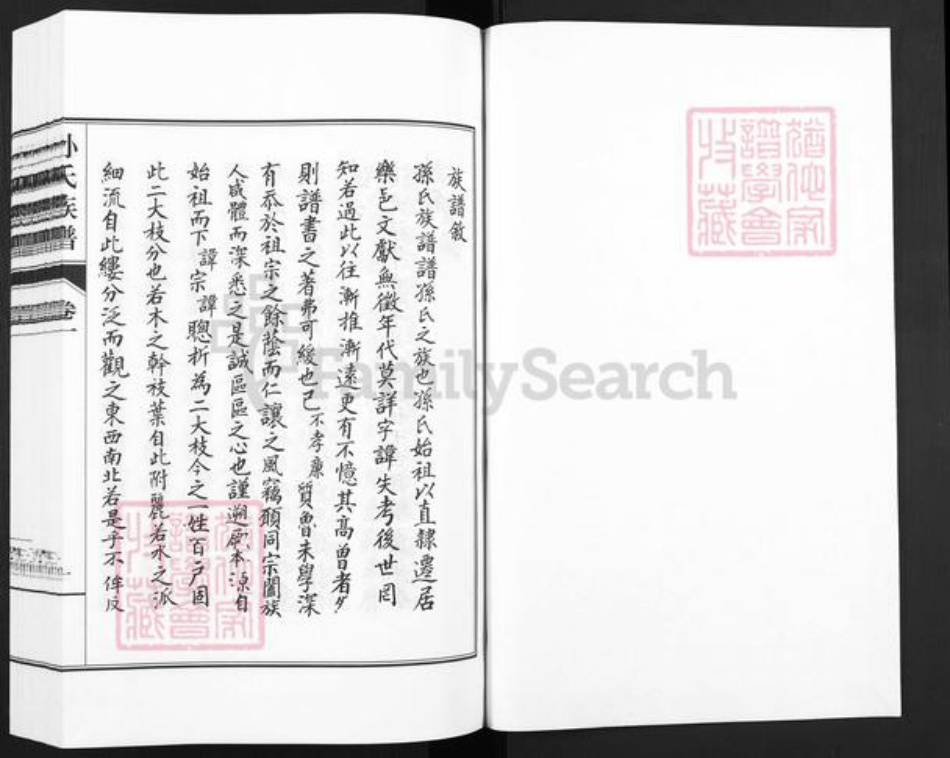 族譜敘
孫氏族譜譜孫氏之族也孫氏始祖以直隸遷居
樂邑文獻無徵年代莫詳字諱失考後世罔
知若過此以往漸推漸遠更有不憶其高曾者
則譜書之著弗可緩也已不孝廉質魯未學深
有忝於祖宗之餘蔭而仁讓之風竊願同宗闔族
人咸體而深悉之是誠區區之心也謹遡厥本源自
始祖而下諱宗諱聰析為二大枝今之一姓百戶固
此二大枝分也若木之幹枝葉自此附麗若水之派
細流自此縷分泛而觀之東西南北若是乎不侔反
孫氏族譜
卷一
猶他家
譜學會
收藏
猶他家
譜學會
收藏
FamilySearch